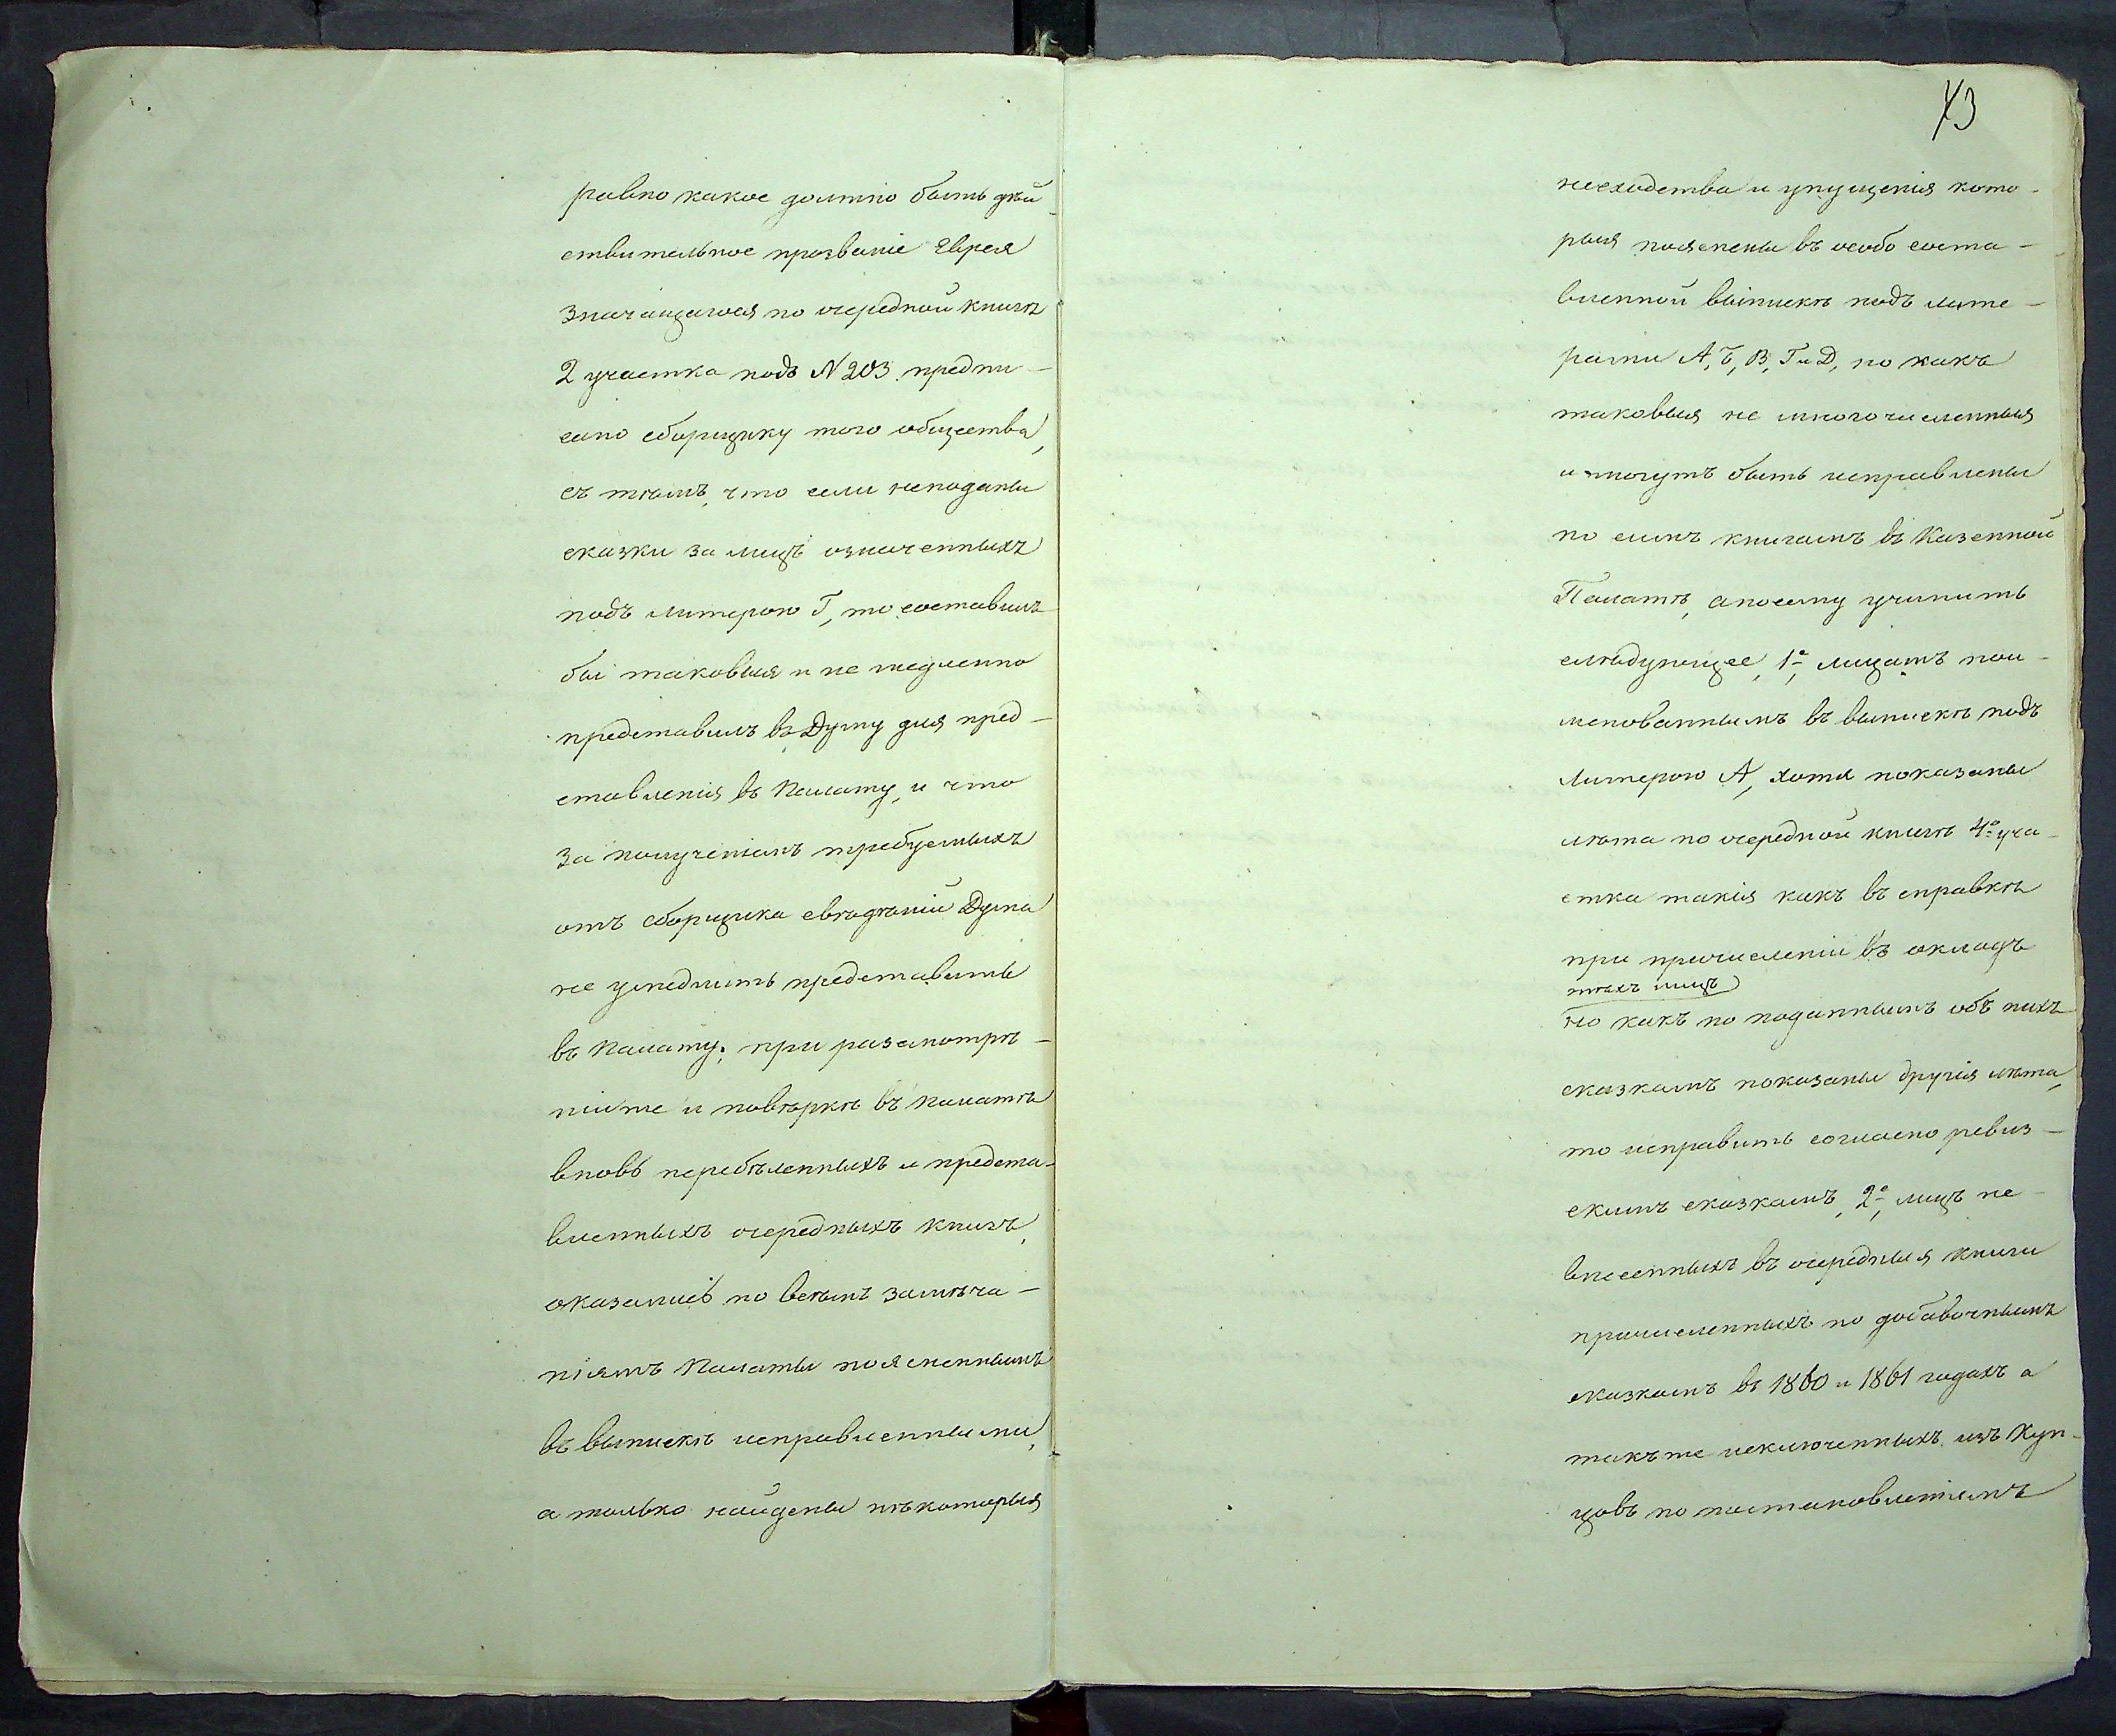 равно какое должно быть дѣй-
ствительное прозваніе Еврея
значащагося по очередной книгѣ
2 участка подъ N 203. предпи-
сано сборщику того общества,
съ тѣмъ, что если неподаны
сказки за лицъ означенныхъ
подъ литерою Г, то составилъ
бы таковыя и не медленно
представилъ въ Думу для пред-
ставленія въ Палату, и что
за полученіемъ требуемыхъ
отъ сборщика свѣдѣній Дума
не умедлитъ представить
въ Палату; при разсмотрѣ-
ніи же и повѣркѣ въ Палатѣ
вновь перебѣленныхъ и предста-
вленныхъ очередныхъ книгъ,
оказались по всѣмъ замѣча-
ніямъ Палаты пояснennымъ
въ выпискѣ исправленными,
а только найдены нѣкоторыя
73
несходства и упущенія кото-
рыя пояснены въ особо соста-
вленной выпискѣ подъ лите-
рами А, Б, В, Г и Д, но какъ
таковыя не многочисленныя
и могутъ быть исправлены
по симъ книгамъ въ Казенной
Палатѣ, апосему учинить
слѣдующее, 1е, лицамъ пои-
менованнымъ въ выпискѣ подъ
Литерою А, хотя показаны
лѣта по очередной книгѣ 4го уча-
стка такія какъ въ справкѣ
при причисленіи въ окладъ
тѣхъ лицъ
но какъ по поданнымъ объ нихъ
сказкамъ показаны другія лѣта,
то исправить согласно ревиз-
скимъ сказкамъ, 2е, лицъ не-
внесенныхъ въ очередныя книги
причисленныхъ по добавочнымъ
сказкамъ въ 1860 и 1861 годахъ а
такъже исключенныхъ изъ Куп-
цовъ по постановленіямъ